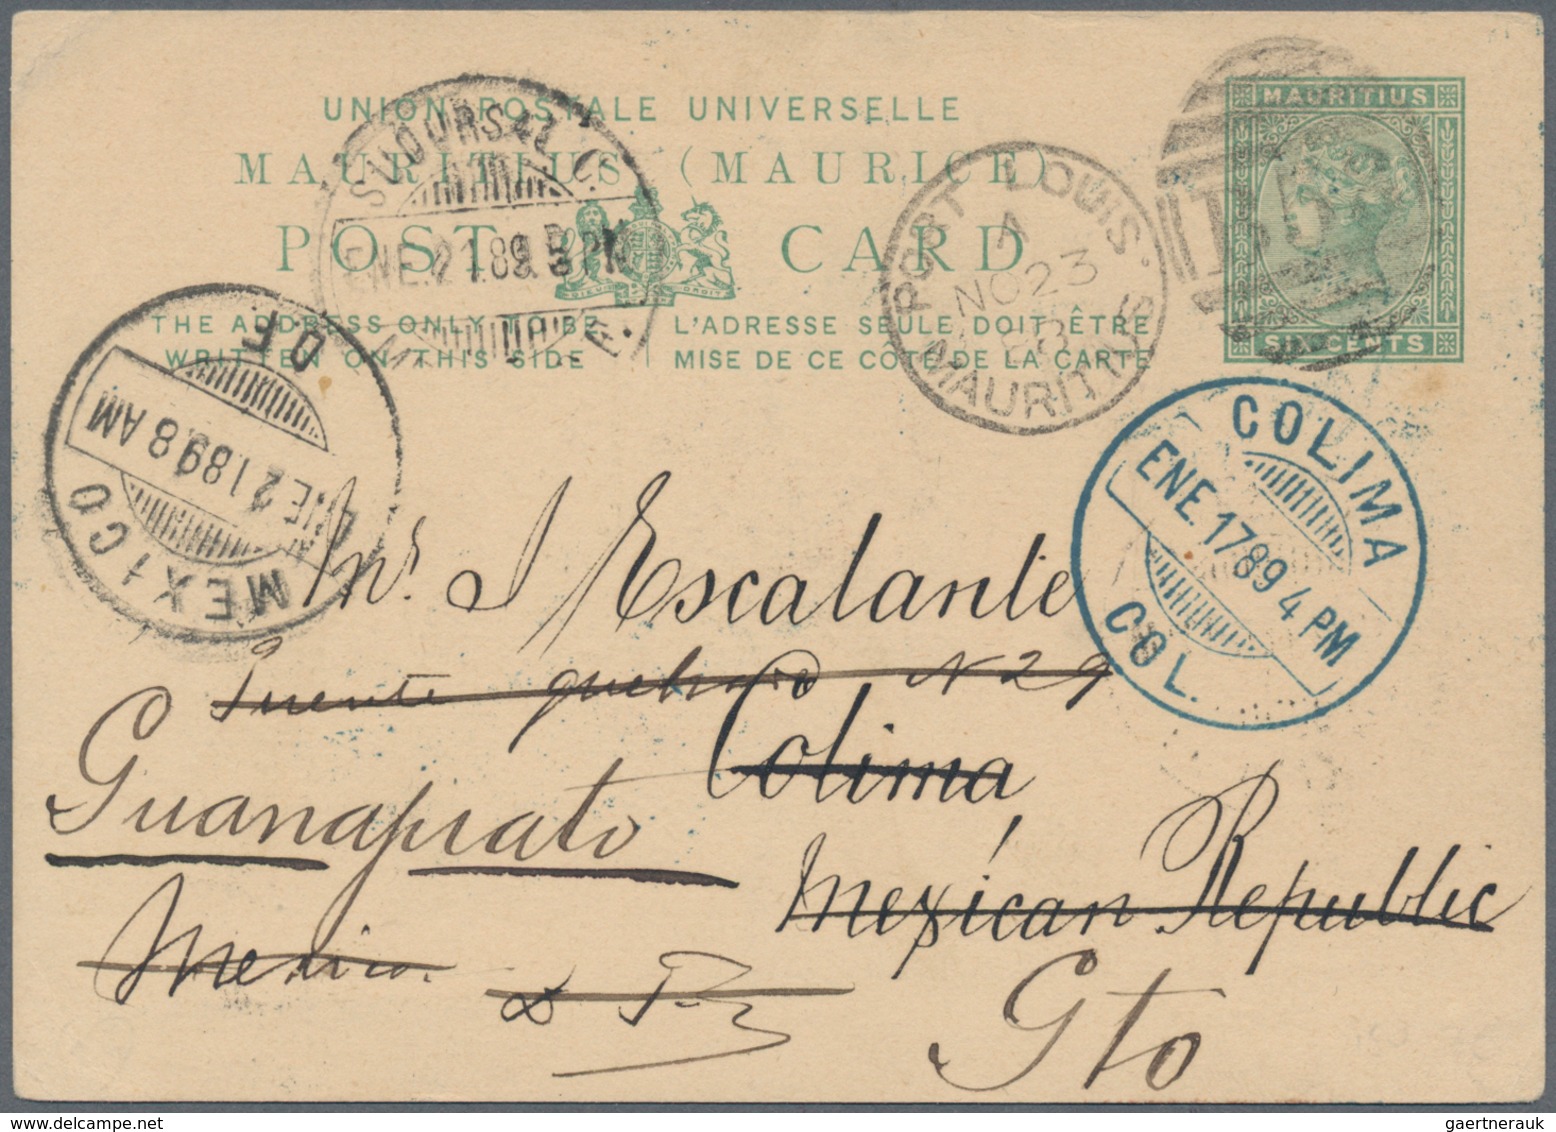 UNION POSTALE UNIVERSELLE
MAURITIUS (MAURICE)
POST CARD
THE ADDRESS ONLY TO BE
WRITTEN ON THIS SIDE
L'ADRESSE SEULE DOIT ÊTRE
MISE DE CE COTÉ DE LA CARTE
MAURITIUS
SIX CENTS
B53
PORT LOUIS.
A
NO 23
88
MAURITIUS
SUCURSAL C.
ENE. 21 89
COLIMA
ENE. 17 89 4 PM
COL.
MEXICO
ENE 21 89 8 AM
D F
Mr. J Escalante
Puente quebrado N 29
Colima
Guanajuato
Mexican Republic
Mexico
Gto
gaertnerauk